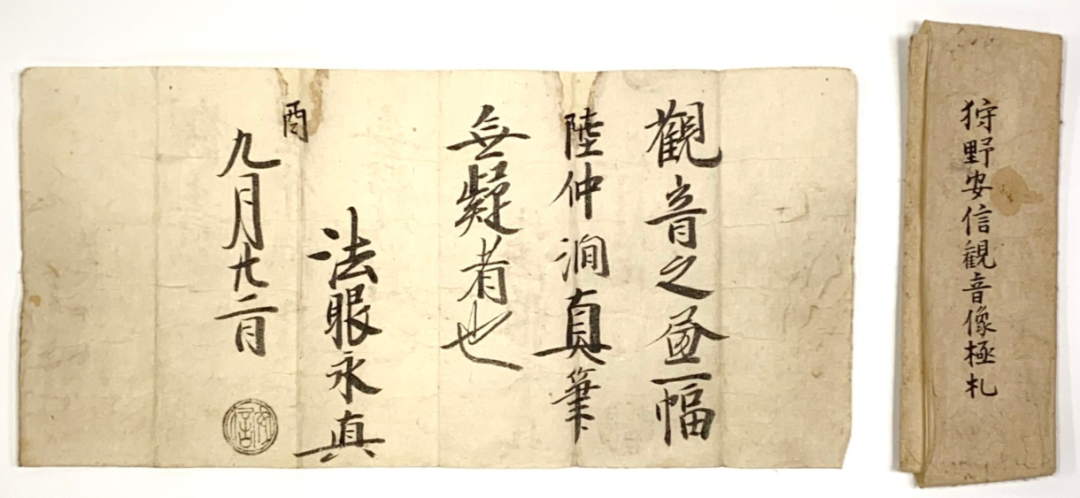 觀音之畫一幅
陸仲淵真筆
無疑者也
法眼永真
酉
九月廿二日
安信
狩野安信觀音像極札